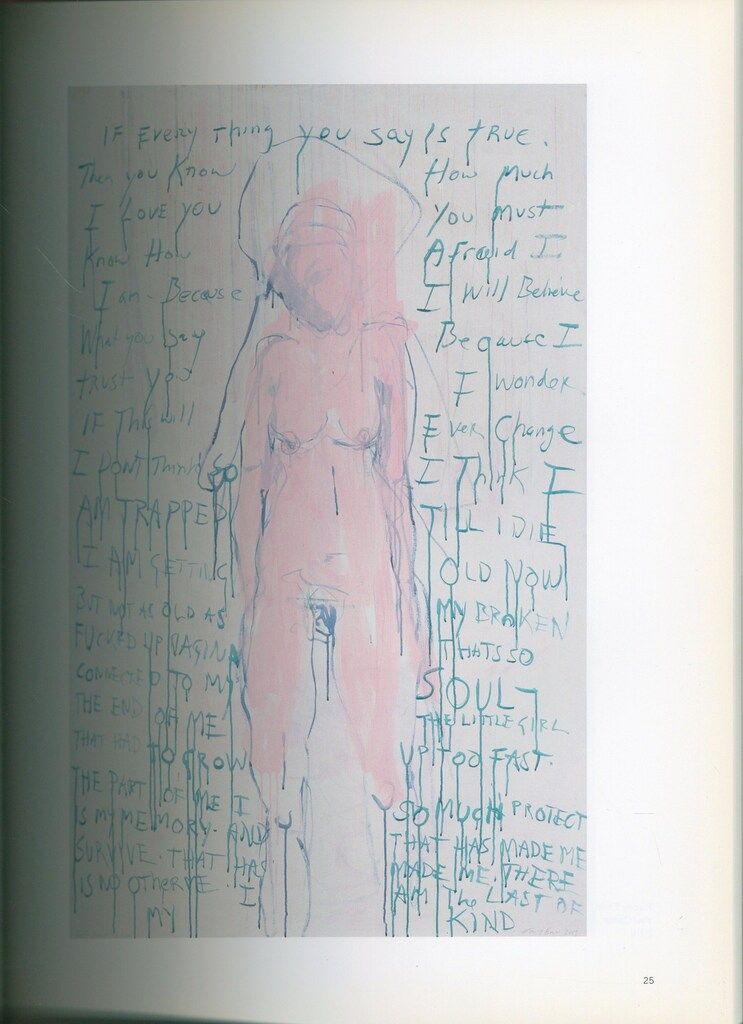 IF Every Thing you say Is true.
Then you Know How much
I LOVE YOU You must
Know How Afraid I
I am - Because I Will Believe
What you Say Because I
trust you I wonder
IF This will Ever Change
I Dont Think So I Think I
AM TRAPPED TILL I DIE
I AM GETTING OLD NOW
BUT NOT AS OLD AS MY BROKEN
FUCKED UP VAGINA THATS SO
CONNECTED TO MY SOUL
THE END OF ME THE LITTLE GIRL
THAT HAD TO GROW UP TOO FAST.
THE PART OF ME I SO MUCH PROTECT
IS MY MEMORY. AND THAT HAS MADE ME
SURVIVE. THAT HAS MADE ME. THERE
IS NO OTHER I AM The LAST OF
MY KIND
25